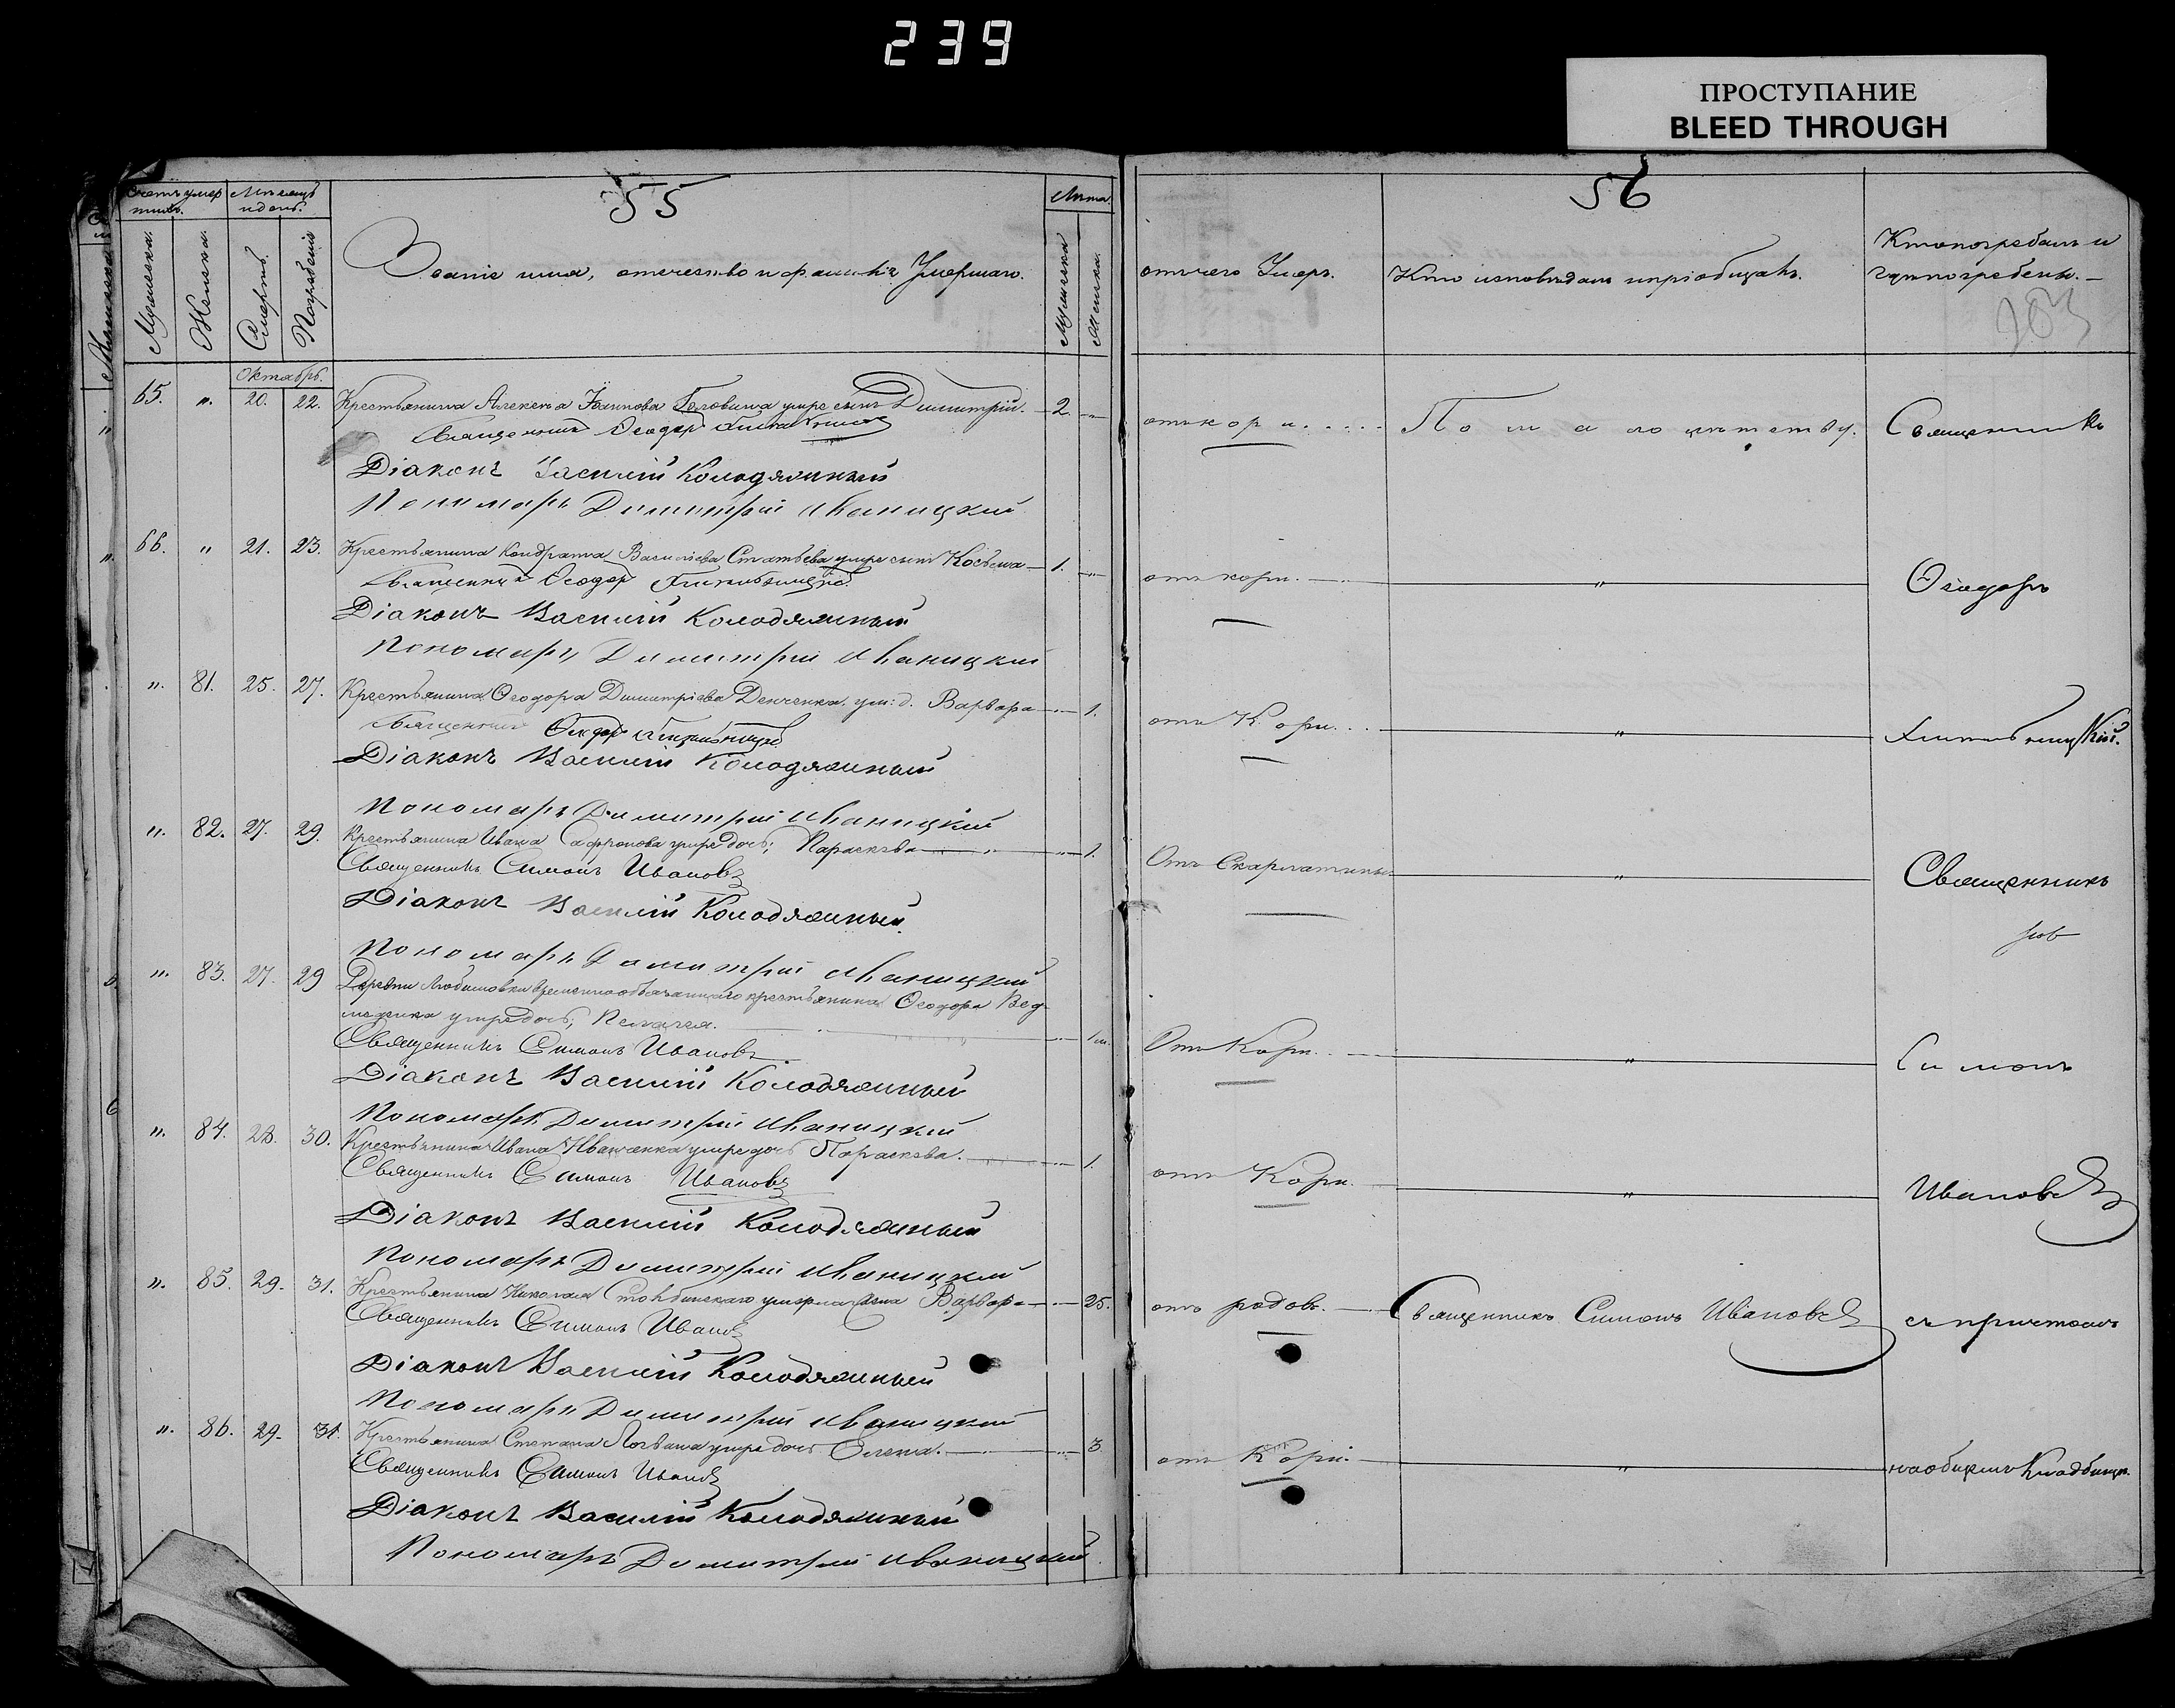 239
ПРОСТУПАНИЕ
BLEED THROUGH
55
Счетъ умершихъ.
Мѣсяцъ и день.
Лѣта.
Мужеска.
Женска.
Смерти.
Погребенія
Званіе имя, отечество и фамилія Умершаго.
Мужеска
Женска.
Октябрь.
65. „ 20. 22. Крестьянина Алексѣя Іоаннова Головина умре сынъ Димитрій. 2. „
Священникъ Ѳеодоръ
Діаконъ Василій Колодяжный
Пономарь Димитрій Иваницкій
66. „ 21. 23. Крестьянина Кондрата Василіева умре сынъ Косьма 1. „
Священникъ Ѳеодоръ
Діаконъ Василій Колодяжный
Пономарь Димитрій Иваницкій
„ 81. 25. 27. Крестьянина Ѳеодора Димитріева Денченка ум: д. Варвара 1.
Священникъ Ѳеодоръ
Діаконъ Василій Колодяжный
Пономарь Димитрій Иваницкій
„ 82. 27. 29. Крестьянина Ивана Сафронова умре дочь; Параскева „ 1.
Священникъ Симонъ Ивановъ
Діаконъ Василій Колодяжный
Пономарь Димитрій Иваницкій
„ 83. 27. 29 Деревни Любимовки временнообязаннаго крестьянина Ѳеодора
умре дочь; Пелагея.
Священникъ Симонъ Ивановъ
Діаконъ Василій Колодяжный
Пономарь Димитрій Иваницкій
„ 84. 28. 30. Крестьянина Ивана Иванченка умре дочь Параскева. 1.
Священникъ Симонъ Ивановъ
Діаконъ Василій Колодяжный
Пономарь Димитрій Иваницкій
„ 85. 29. 31. Крестьянина Николая умерла жена Варвара 25.
Священникъ Симонъ Ивановъ
Діаконъ Василій Колодяжный
Пономарь Димитрій Иваницкій
„ 86. 29. 31. Крестьянина Степана умре дочь Елена. 3.
Священникъ Симонъ Ивановъ
Діаконъ Василій Колодяжный
Пономарь Димитрій Иваницкій
56
отъ чего Умеръ.
Кто исповѣдалъ и пріобщалъ.
Кто погребалъ и
гдѣ погребены.
отъ кори По малолѣтству. Священникъ
отъ кори. „ Ѳеодоръ
отъ Кори „
Отъ Скарлатины „ Священникъ
Отъ Кори. „ Симонъ
отъ Кори. „ Ивановъ
отъ родовъ. Священникъ Симонъ Ивановъ съ причтомъ
отъ Кори. „ на общемъ Кладбищѣ.